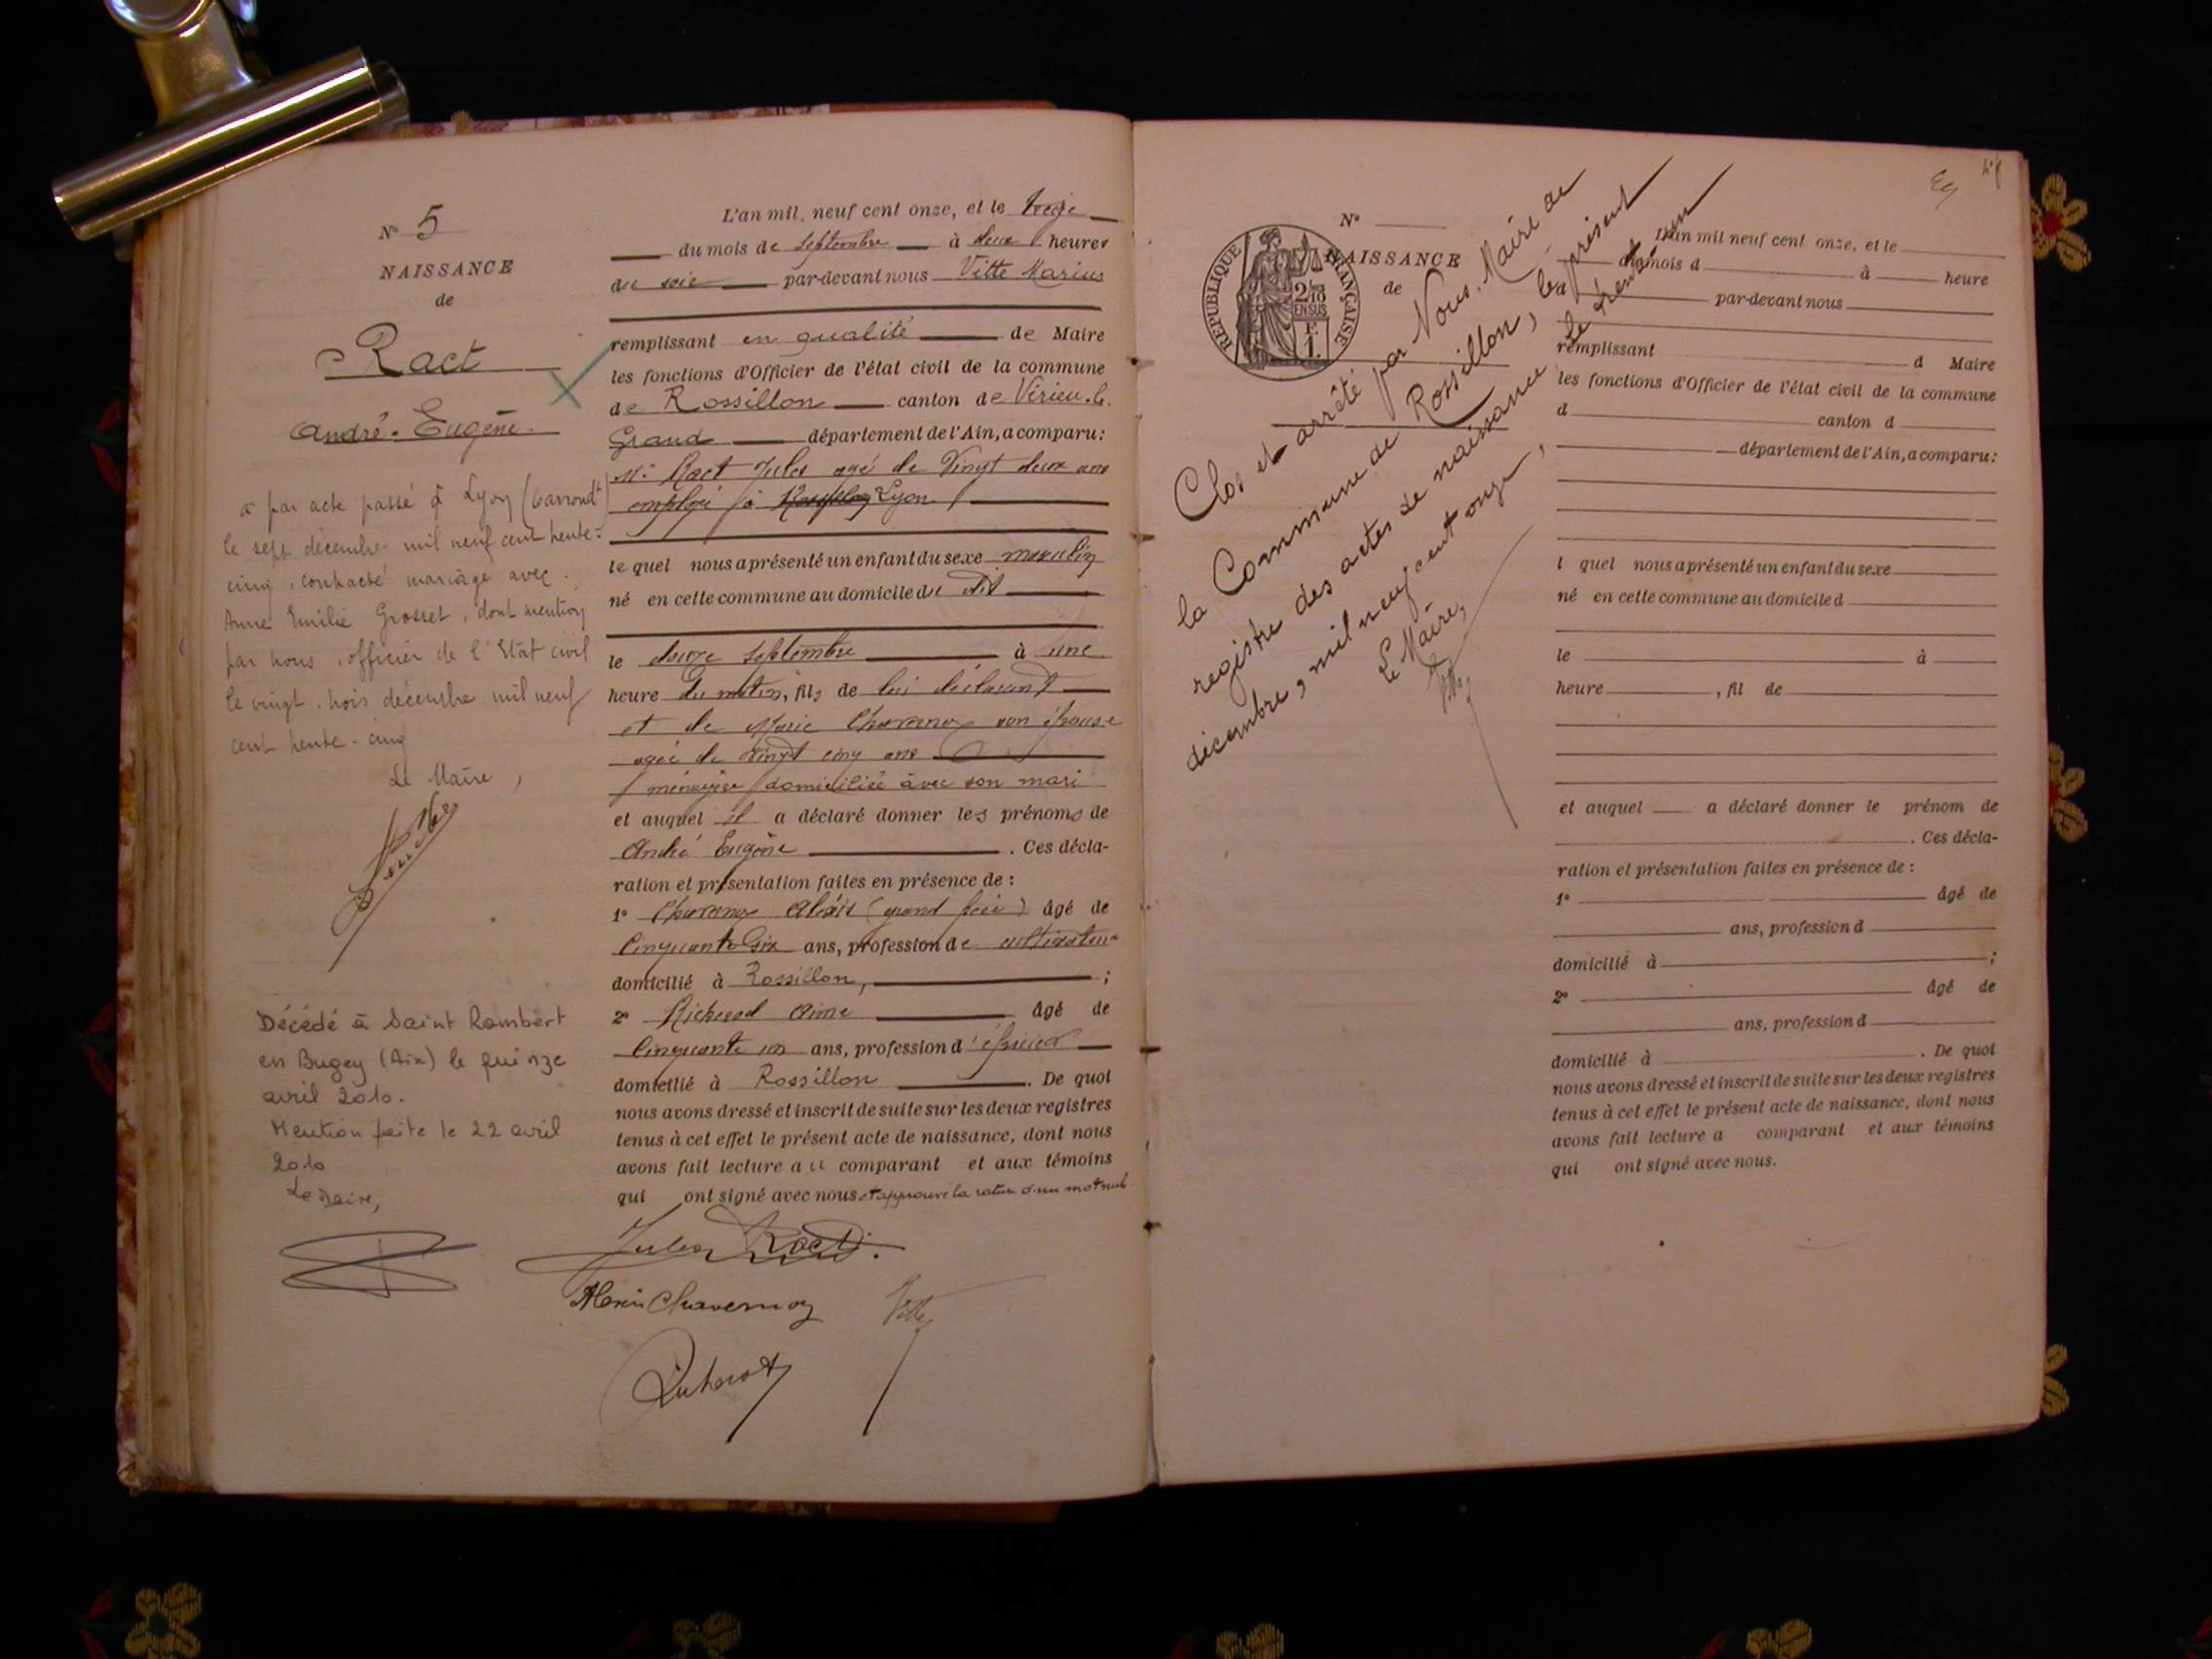 N° 5
NAISSANCE
de
Ract
André-Eugène
a par acte passé à Lyon (6 arrondt)
le sept décembre mil neuf cent trente-
cinq, contracté mariage avec
Anne Emilie Grosset, dont mention
par nous, officier de l'Etat civil
le vingt-trois décembre mil neuf
cent trente-cinq
Le Maire,
Décédé à Saint Rambert
en Bugey (Ain) le quinze
avril 2010.
Mention faite le 22 avril
2010
Le Maire,
L'an mil neuf cent onze, et le treize
du mois de septembre à deux heures
du soir par-devant nous Vitte Marius
remplissant en qualité de Maire
les fonctions d'Officier de l'état civil de la commune
de Rossillon canton de Virieu-le-
Grand département de l'Ain, a comparu:
Mr Ract Jules agé de Vingt deux ans
employé à Lyon
lequel nous a présenté un enfant du sexe masculin
né en cette commune au domicile du dit
le douze septembre à une
heure du matin, fils de lui déclarant
et de Marie Chavernoz son épouse
agée de vingt cinq ans
ménagère domiciliée avec son mari
et auquel il a déclaré donner les prénoms de
André Eugène . Ces décla-
ration et présentation faites en présence de :
1° Chavernoz Alexis (grand père) âgé de
Cinquante six ans, profession de cultivateur
domicilié à Rossillon, ;
2° Richerod Aimé âgé de
Cinquante un ans, profession d'épicier
domicilié à Rossillon . De quoi
nous avons dressé et inscrit de suite sur les deux registres
tenus à cet effet le présent acte de naissance, dont nous
avons fait lecture au comparant et aux témoins
qui ont signé avec nous et approuvé la rature d'un mot nul
Jules Ract
Alexis Chavernoz Vitte
Richerod
48
N°
NAISSANCE
de
REPUBLIQUE FRANÇAISE
2/10
EN SUS
F.
1.
Clos et arrêté par Nous, Maire de
la Commune de Rossillon, le présent
registre des actes de naissance le trente un
décembre, mil neuf cent onze,
Le Maire,
Vitte
L'an mil neuf cent onze, et le
du mois d à heure
par-devant nous
remplissant d Maire
les fonctions d'Officier de l'état civil de la commune
d canton d
département de l'Ain, a comparu:
l quel nous a présenté un enfant du sexe
né en cette commune au domicile d
le à
heure , fil de
et auquel a déclaré donner le prénom de
. Ces décla-
ration et présentation faites en présence de :
1° âgé de
ans, profession d
domicilié à ;
2° âgé de
ans, profession d
domicilié à . De quoi
nous avons dressé et inscrit de suite sur les deux registres
tenus à cet effet le présent acte de naissance, dont nous
avons fait lecture a comparant et aux témoins
qui ont signé avec nous.